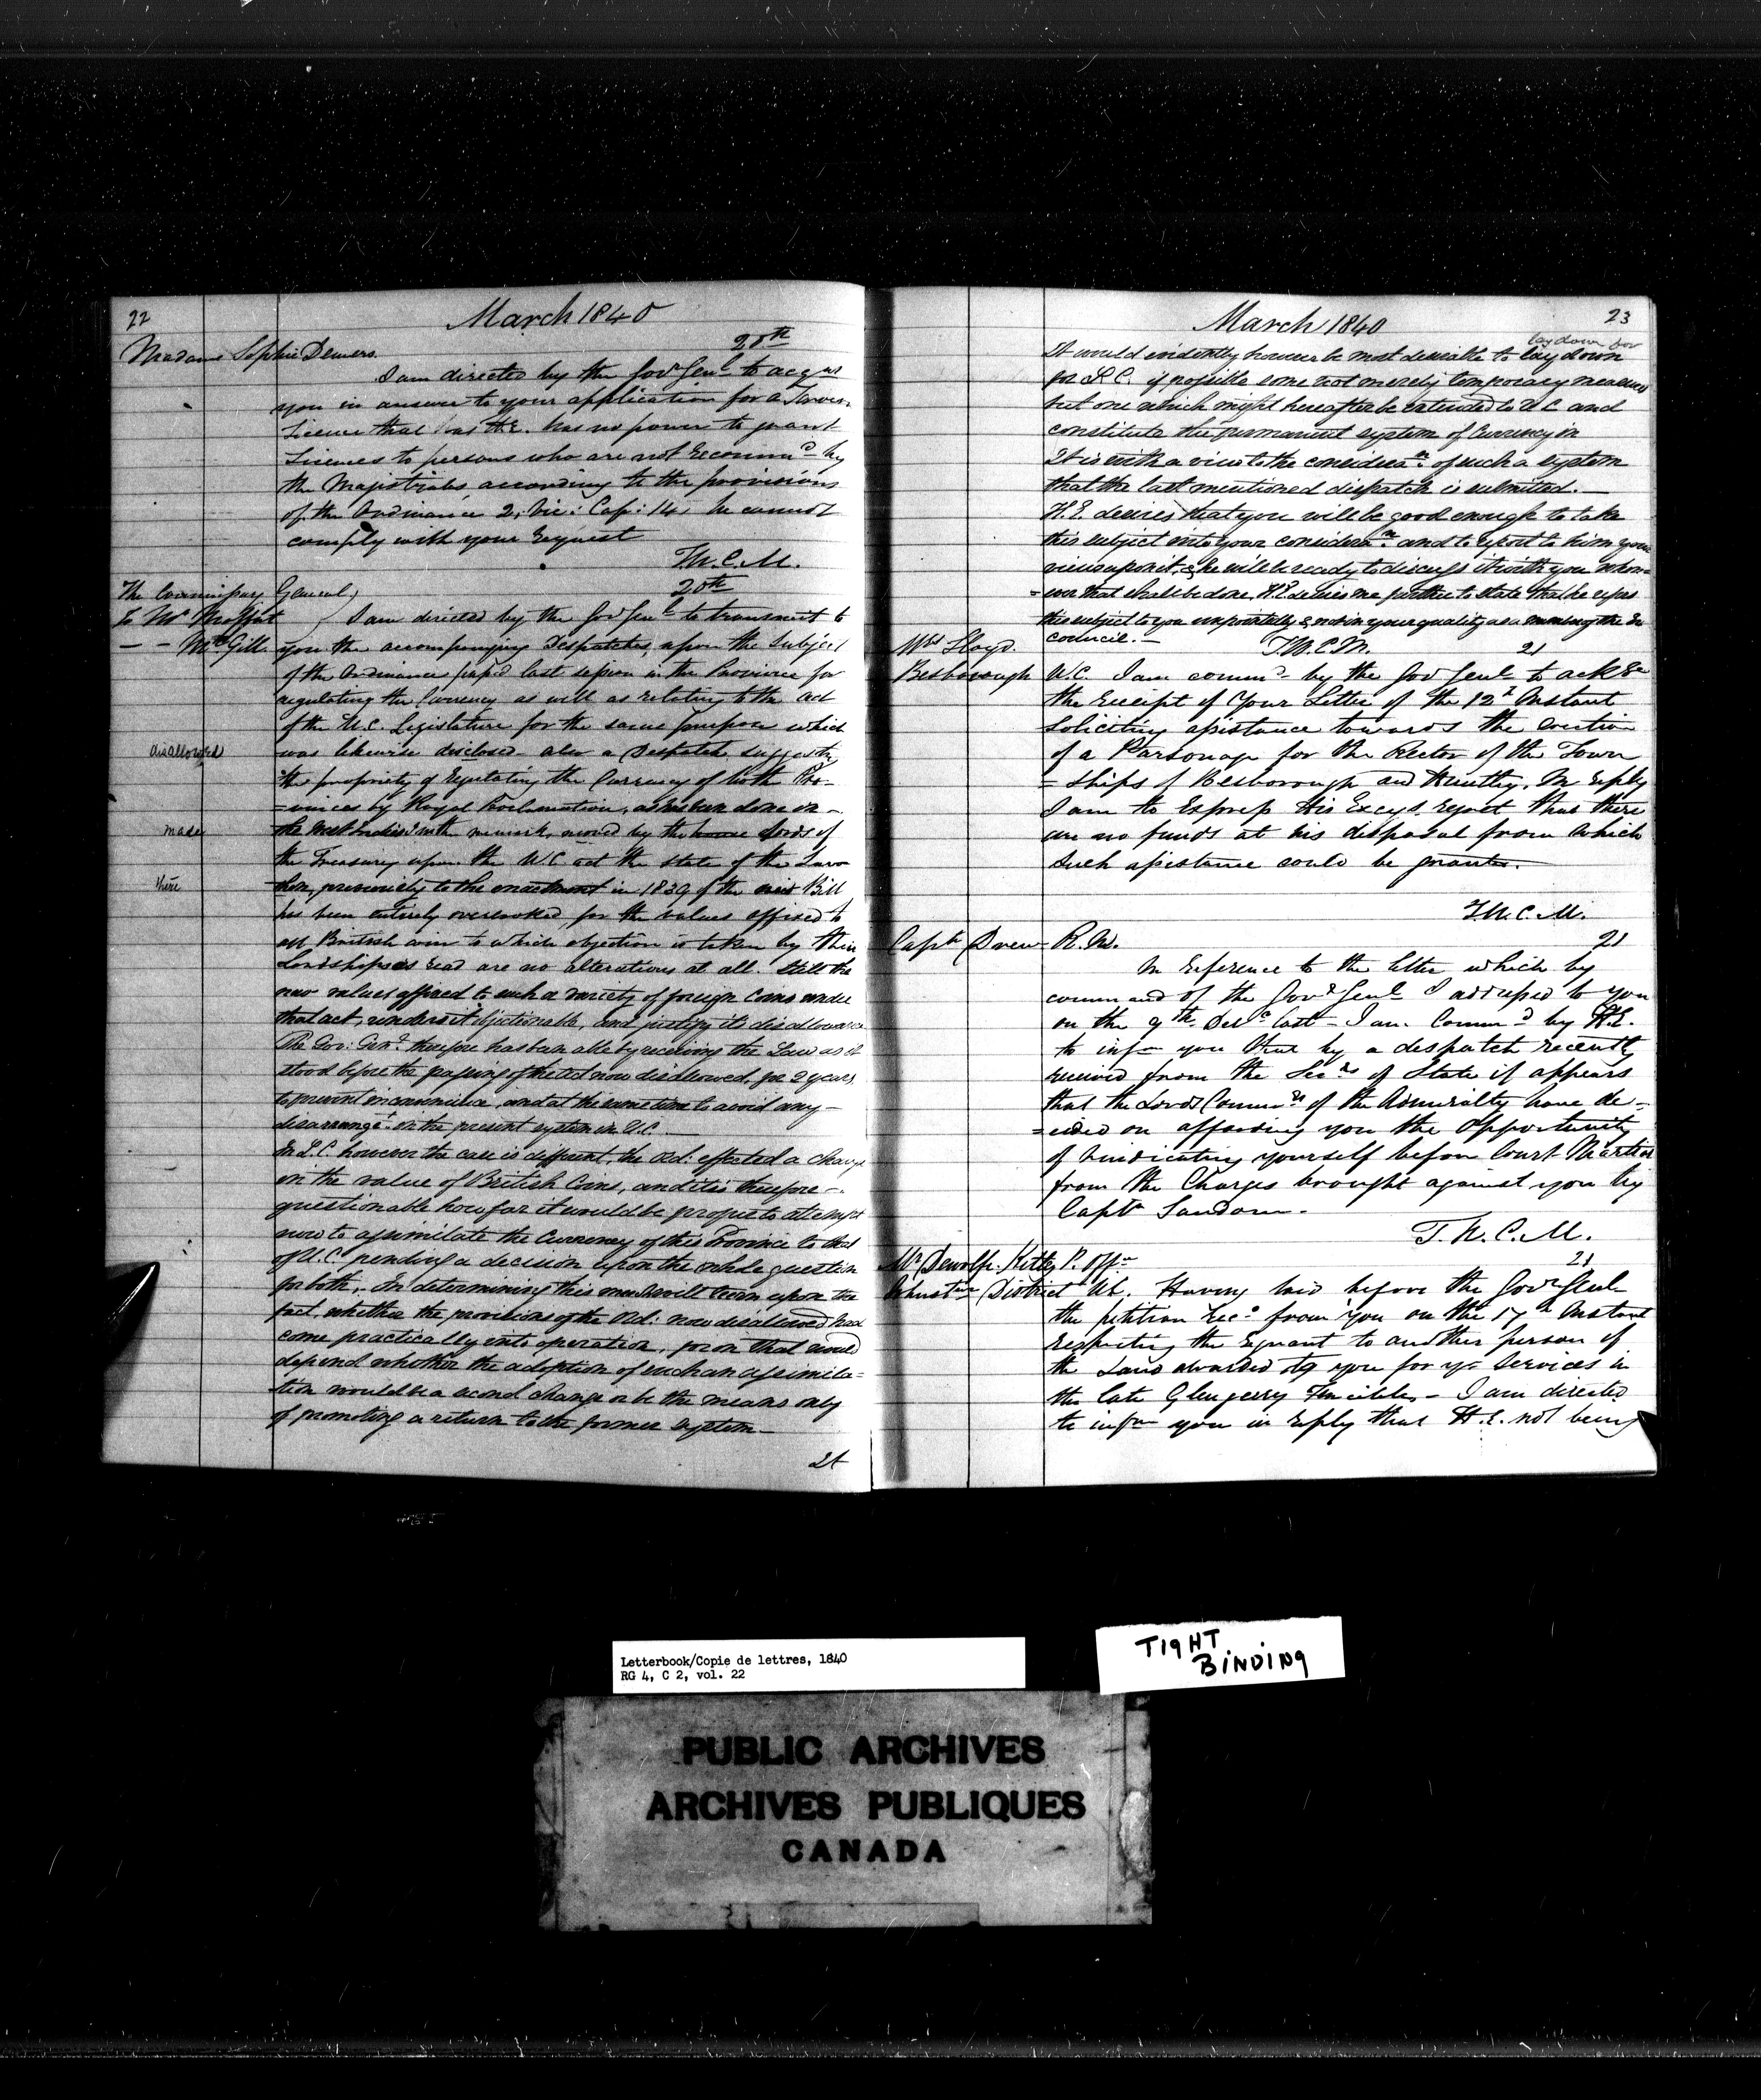 22
March 1840
Madame Sophie Demers. 20th
I am directed by the Govr Genl to acqu
you in answer to your application for a Tavern
Licence that as H.E. has no power to grant
Licences to persons who are not recommd by
the Magistrates according to the provisions
of the Ordinance 2, Vic: Cap: 14, he cannot
comply with your request
T.W.C.M.
The Commissary General, 20th
to Mr Moffat I am directed by the Govr Genl to transmit to
- - McGill you the accompanying Despatches, upon the subject
of the Ordinance pass'd last session in the Province for
regulating the Currency as well as relating to the act
of the U.C. Legislature for the same purpose which
disallowed was likewise disclosed - also a Despatch suggestg
the propriety of regulating the Currency of both Pro-
=vinces by Royal Proclamation, as has been done in -
made the West Indies with remark, moved by the Lords of
the Treasury upon the U.C. act the state of the Law
there then, previously to the enactment in 1839 of the said Bill
has been entirely overlooked, for the values affixed to
all British coin to which objection is taken by their
Lordships read are no alterations at all. Still the
new values affixed to such a variety of foreign Coins under
that act, renders it objectionable, and justify its disallowance
The Gov: Genl therefore has been able by receiving the Law as it
stood before the passing of the Act now disallowed, for 2 years,
to prevent inconvenience, and at the same time to avoid any -
disarrangt in the present system in U.C. -
In L.C. however the case is different, the Ord: effected a change
in the value of British Coins, and it is therefore -
questionable how far it would be proper to attempt
now to assimilate the Currency of this Province to that
of U.C. pending a decision upon the whole question
for both. In determining this much will turn upon the
fact, whether the provisions of the Ord: now disallowed had
come practically into operation, for on that would
depend whether the adoption of such an assimila=
tion would be a second change or be the means only
of promoting a return to the former system -
It
March 1840 23
lay down for
It would evidently however be most desirable to lay down
for L.C. if possible some not merely temporary measure
but one which might hereafter be extended to U.C. and
constitute the permanent system of Currency in
It is with a view to the consideran of such a system
that the last mentioned dispatch is submitted. -
H.E. desires that you will be good enough to take
this subject into your consideran and to report to him your
views upon it, & he will be ready to discuss it with you when=
=ever that shall be done, H.E. desires me further to state that he refers
this subject to you & not in your quality as a member of the Ex
Council. - T.W.C.M.
Wm Lloyd. 21
Besborough U.C. I am commd by the Gov Genl to ack
the receipt of Your Letter of the 12t Instant
soliciting assistance towards the erection
of a Parsonage for the Rector of the Town
=ships of Besborough and Huntley, In reply
I am to Express His Excys regret that there
are no funds at his disposal from which
such assistance could be granted.
T.W.C.M.
Captn Drew R.N. 21
In reference to the letter which by
command of the Govr Genl I addressed to you
on the 9th Decr last - I am Commd by H.E.
to infm you that by a despatch recently
received from the Secry of State it appears
that the Lords Commrs of the Admiralty have de-
=cided on affording you the Opportunity
of vindicating yourself before Court Martial
from the Charges brought against you by
Captn Sandom.
T.W.C.M.
Mr Dewolfe. Kitley P. Offe 21
Johnstown District U.C. Having laid before the Govr Genl
the petition recd from you on the 17th Instant
respecting the regrant to another person of
the Land awarded to you for yr Services in
the late Glengerry Fencibles - I am directed
to infm you in reply that H.E. not being
Letterbook/Copie de lettres, 1840
RG 4, C 2, vol. 22
TIGHT
BINDING
PUBLIC ARCHIVES
ARCHIVES PUBLIQUES
CANADA